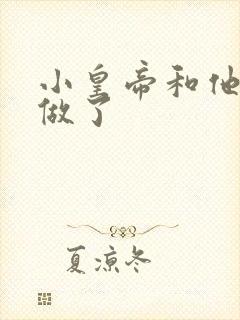 小皇帝和他
做了
夏凉冬